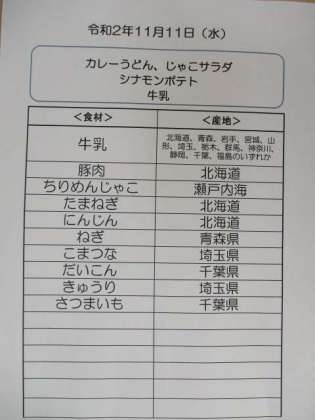 令和2年11月11日（水）
カレーうどん、じゃこサラダ
シナモンポテト
牛乳
＜食材＞ ＜産地＞
牛乳 北海道、青森、岩手、宮城、山
形、埼玉、栃木、群馬、神奈川、
静岡、千葉、福島のいずれか
豚肉 北海道
ちりめんじゃこ 瀬戸内海
たまねぎ 北海道
にんじん 北海道
ねぎ 青森県
こまつな 埼玉県
だいこん 千葉県
きゅうり 埼玉県
さつまいも 千葉県